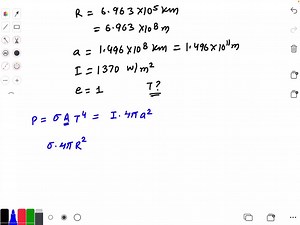 R = 6.963 X10⁵ km
= 6.963 X10⁸ m
a = 1.496X10⁸ km = 1.496X10¹¹m
I = 1370 W/m²
e = 1 T?
P = σ A T⁴ = I. 4π a²
σ. 4π R²